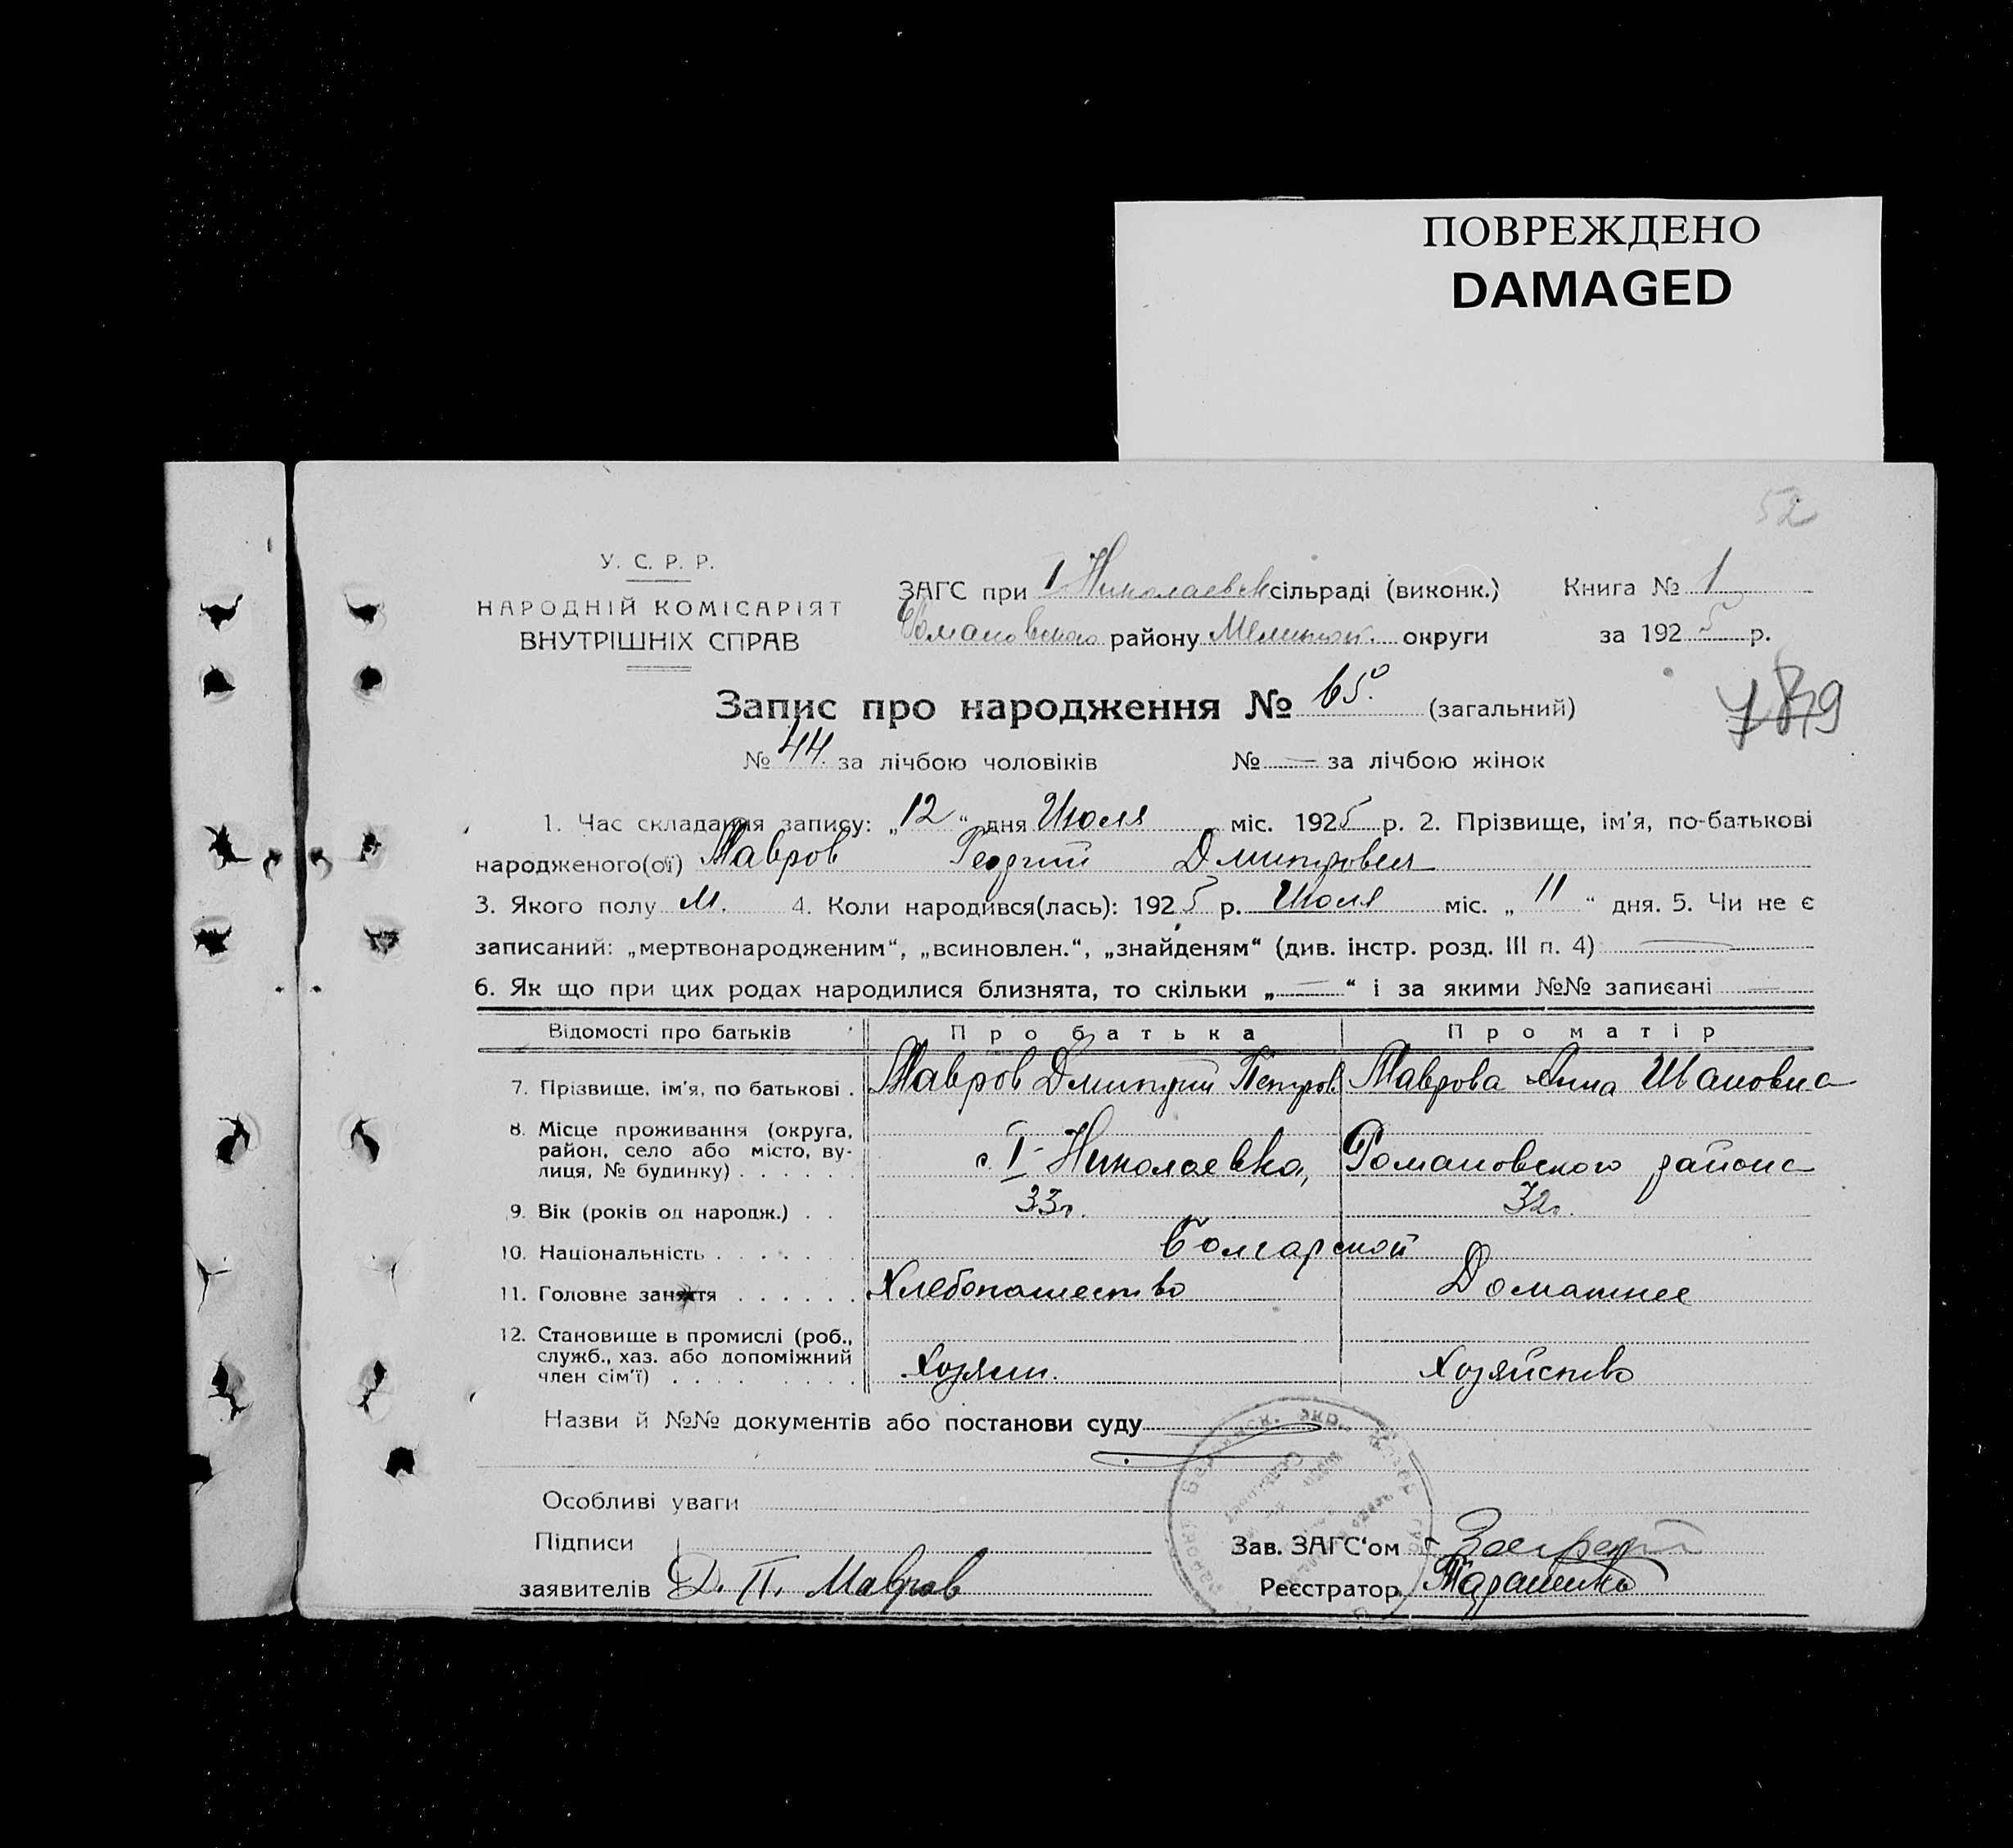 ПОВРЕЖДЕНО
DAMAGED
52
У. С. Р. Р.
НАРОДНІЙ КОМІСАРІЯТ
ВНУТРІШНІХ СПРАВ
ЗАГС при I Николаевск сільраді (виконк.) Книга № 1
Романовского району Мелитоп. округи за 1925 р.
Запис про народження № 65 (загальний)
№ 44 за лічбою чоловіків № — за лічбою жінок
1. Час складання запису: „12“ дня Июля міс. 1925 р. 2. Прізвище, ім'я, по-батькові
народженого(ої) Мавров Георгий Дмитрович
3. Якого полу М. 4. Коли народився(лась): 1925 р. Июля міс. „11“ дня. 5. Чи не є
записаний: „мертвонародженим“, „всиновлен.“, „знайденям“ (див. інстр. розд. III п. 4) —
6. Як що при цих родах народилися близнята, то скільки „—“ і за якими №№ записані —
Відомості про батьків Про батька Про матір
7. Прізвище, ім'я, по батькові . Мавров Дмитрий Петров Маврова Анна Ивановна
8. Місце проживання (округа,
район, село або місто, ву-
лиця, № будинку) . . . . . . с. I Николаевка, Романовского района
9. Вік (років од народж.) . . 33 г. 32 г.
10. Національність . . . . . . . Болгарской
11. Головне заняття . . . . . . Хлебопашество Домашнее
12. Становище в промислі (роб.,
служб., хаз. або допоміжний
член сім'ї) . . . . . . . . . Хозяин. Хозяйство
Назви й №№ документів або постанови суду
Особливі уваги
Підписи Зав. ЗАГС'ом
заявителів Д. П. Мавров Реєстратор